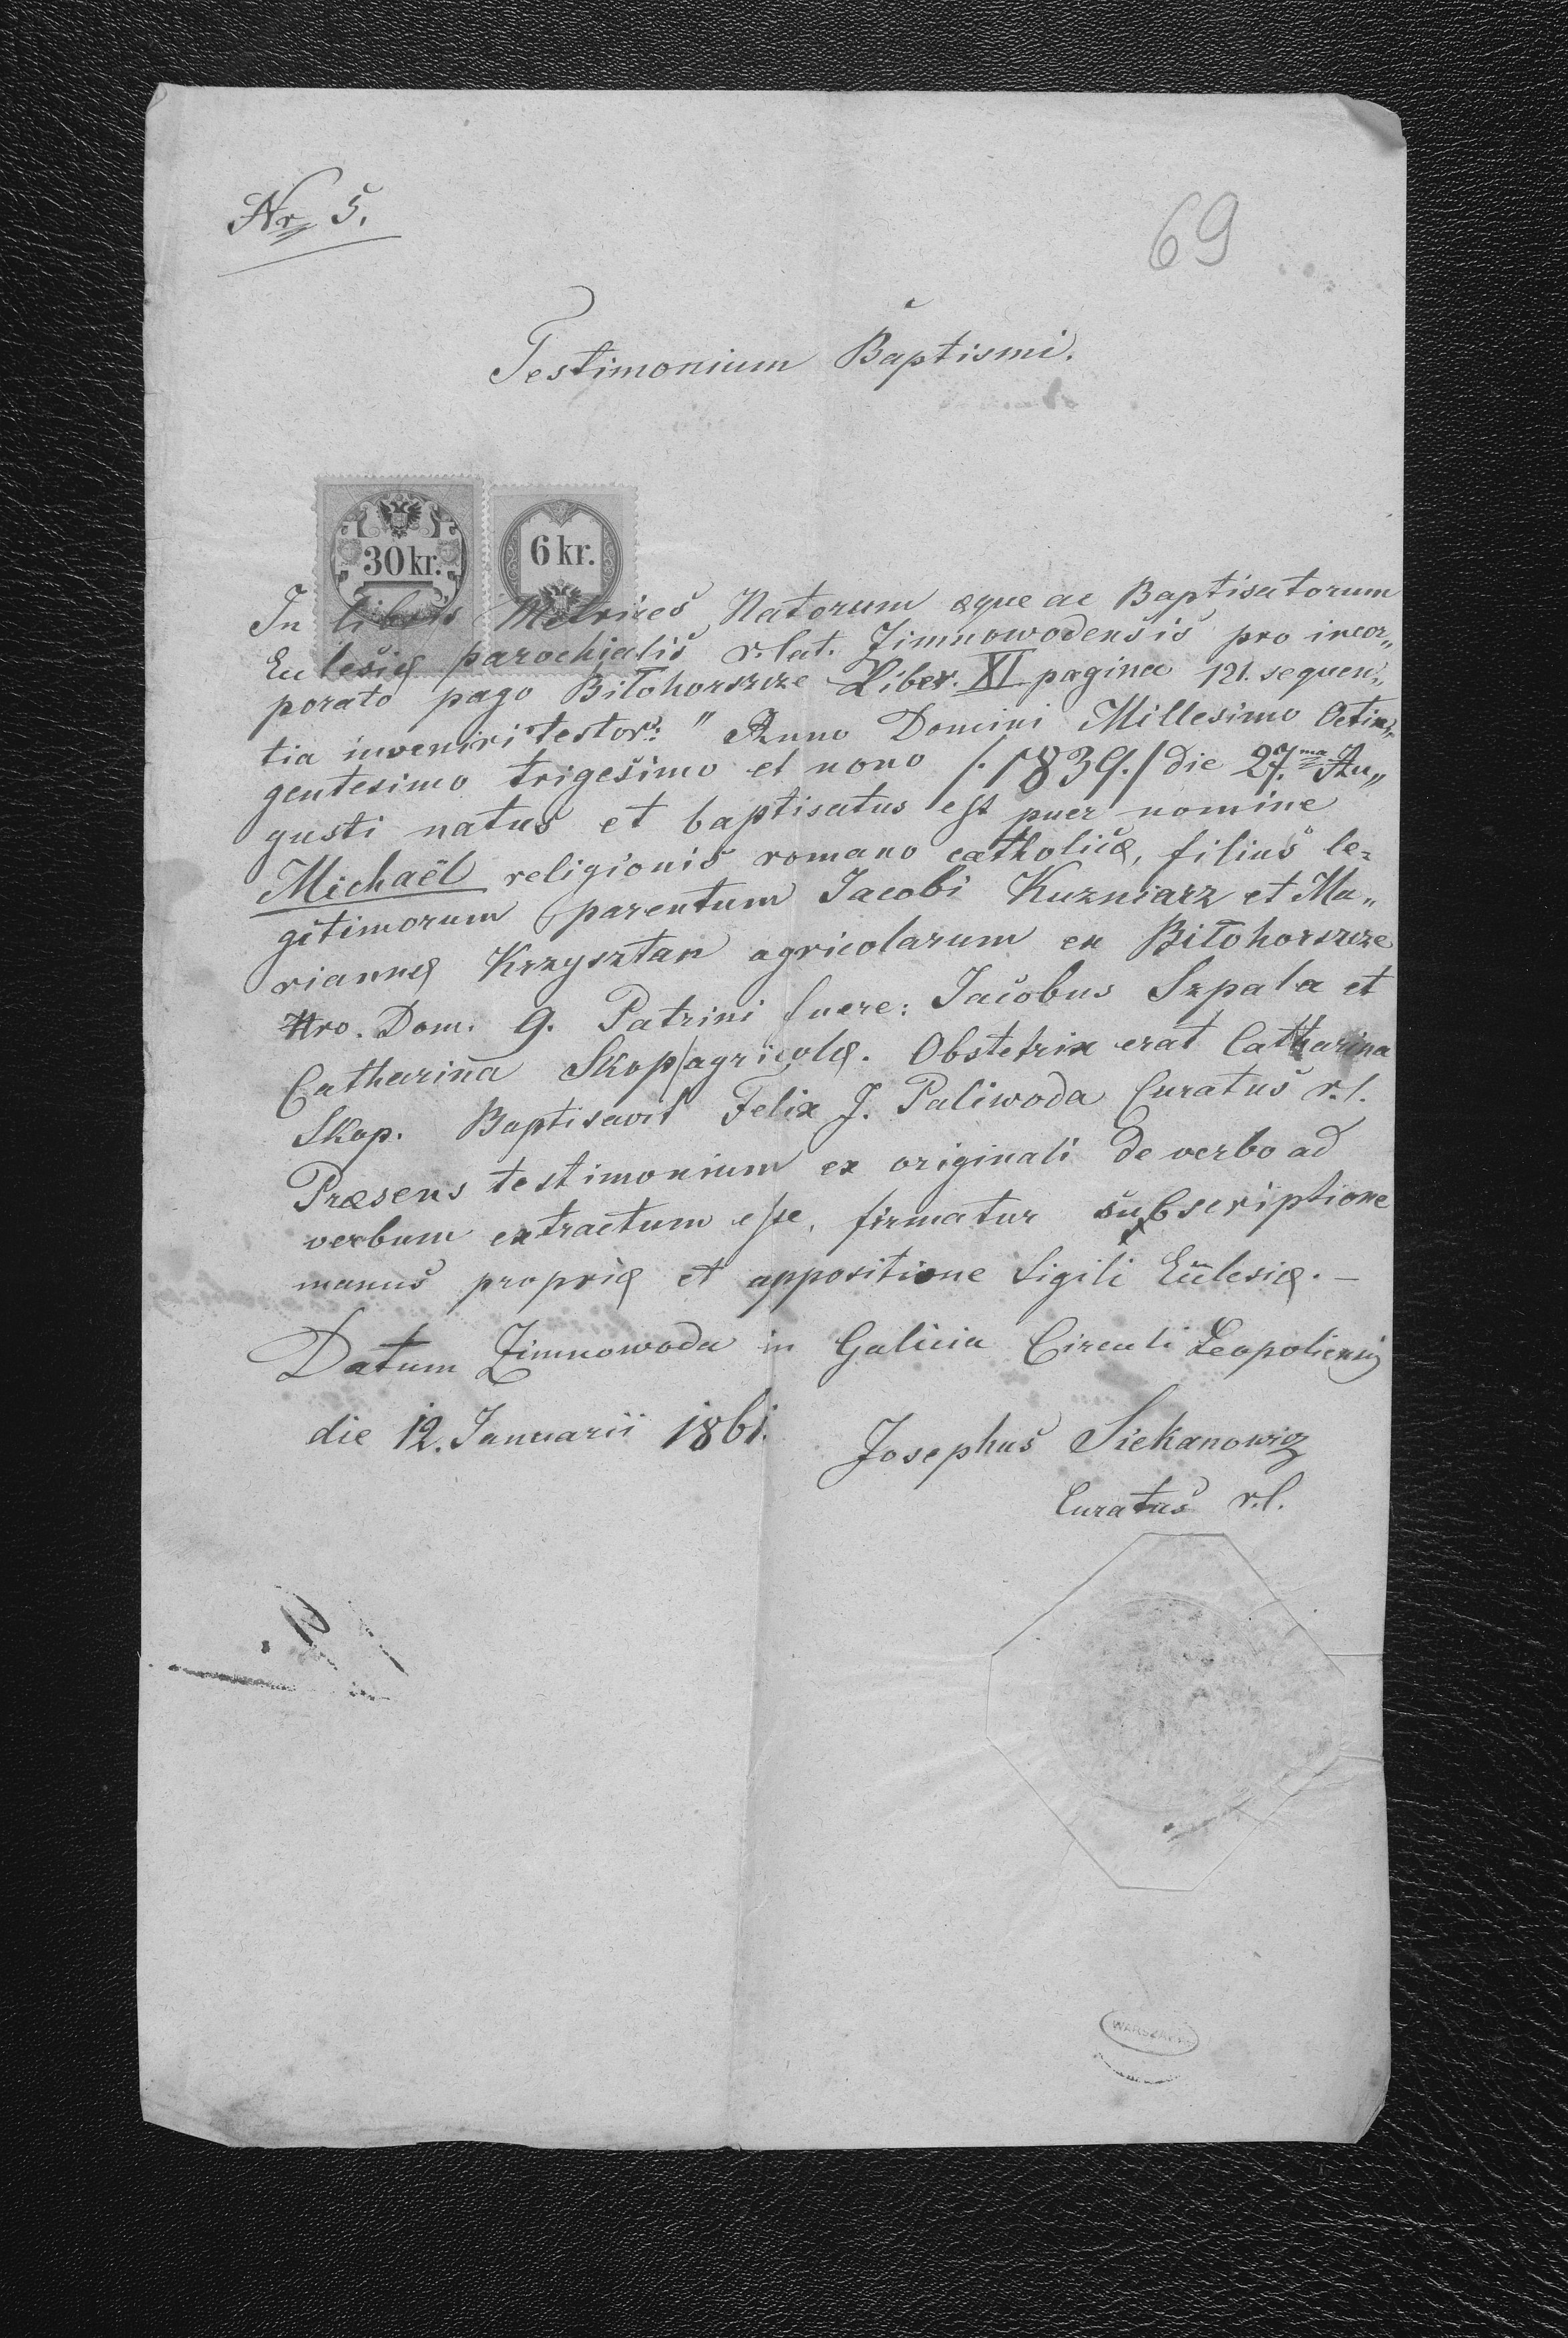 Nr 5.
69
Testimonium Baptismi.
30 kr.
6 kr.
In libros Metrices Natorum æque ac Baptisatorum
Ecclesiæ parochialis r. lat. Zimnowodensis pro incor„
porato pago Biłohorszcze Liber. XI pagina 121. sequen„
tia inveniri testor: " Anno Domini Millesimo Octin„
gentesimo trigesimo et nono /. 1839./ die 27.ma Au„
gusti natus et baptisatus est puer nomine
Michaël religionis romano catholicæ, filius le=
gitimorum parentum Jacobi Kuzniarz et Ma„
riannæ Krzysztan agricolarum ex Biłohorszcze
Nro. Dom. 9. Patrini fuere: Jacobus Szpala et
Catharina Skop/agricolæ. Obstetrix erat Catharina
Skop. Baptisavit Felix J. Paliwoda Curatus r.l.
Præsens testimonium ex originali de verbo ad
verbum extractum esse, firmatur subscriptione
manus propriæ et appositione Sigili Ecclesiæ. —
Datum Zimnowoda in Galicia Circuli Leopoliensis
die 12. Januarii 1861.
Josephus Siekanowicz
Curatus r.l.
WARSZAWA